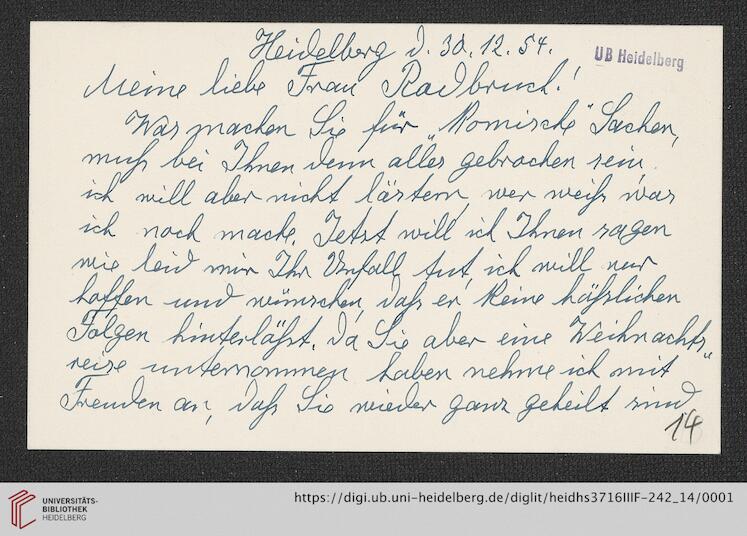 Heidelberg d. 30.12.54.
UB Heidelberg
Meine liebe Frau Radbruch!
Was machen Sie für „Komische" Sachen,
muß bei Ihnen denn alles gebrochen sein,
ich will aber nicht lästern, wer weiß was
ich noch mache. Jetzt will ich Ihnen sagen
wie leid mir Ihr Unfall tut, ich will nur
hoffen und wünschen, daß er keine häßlichen
Folgen hinterläßt. Da Sie aber eine Weihnachts„
reise unternommen haben nehme ich mit
Freuden an, daß Sie wieder ganz geheilt sind
14
UNIVERSITÄTS-
BIBLIOTHEK
HEIDELBERG
https://digi.ub.uni-heidelberg.de/diglit/heidhs3716IIIF-242_14/0001